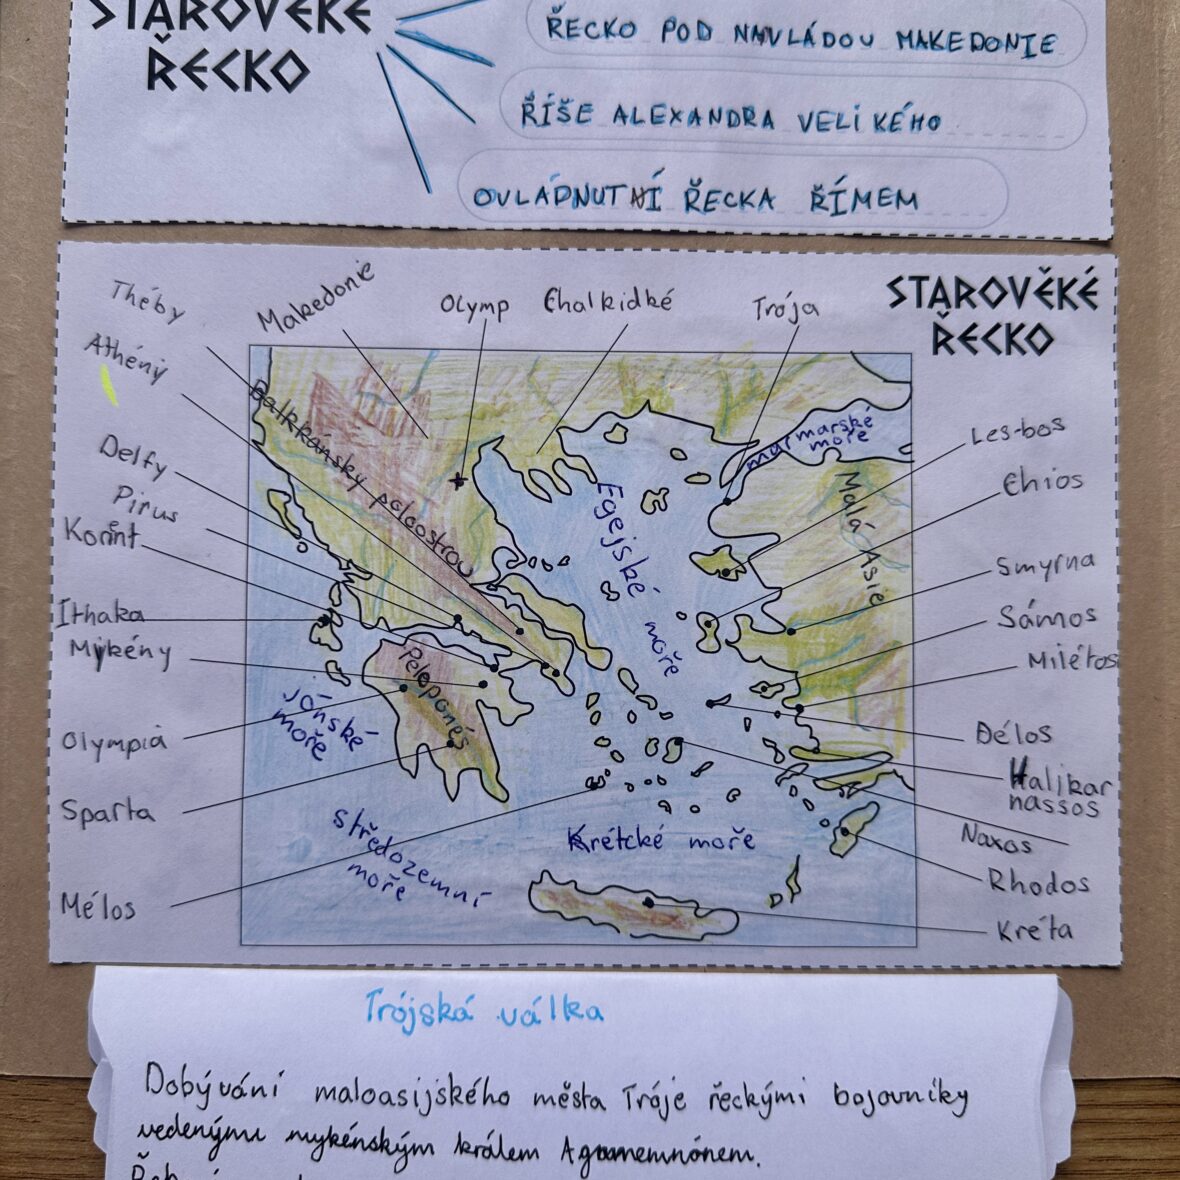 STAROVĚKÉ
ŘECKO
ŘECKO POD NAVLÁDOU MAKEDONIE
ŘÍŠE ALEXANDRA VELIKÉHO
OVLÁDNUTÍ ŘECKA ŘÍMEM
STAROVĚKÉ
ŘECKO
Théby
Makedonie
Olymp
Chalkidké
Trója
Athény
Delfy
Pirus
Korint
Ithaka
Mykény
Olympia
Sparta
Mélos
Balkkánsky poloostrov
Peloponés
Egejské moře
marmarské
moře
Malá Asie
Jónské
moře
středozemní
moře
Krétcké moře
Les-bos
Chios
Smyrna
Sámos
Milétos
Délos
Halikar
nassos
Naxos
Rhodos
Kréta
Trójská válka
Dobývání maloasijského města Tróje řeckými bojovníky
vedenými mykénským králem Agamemnónem.